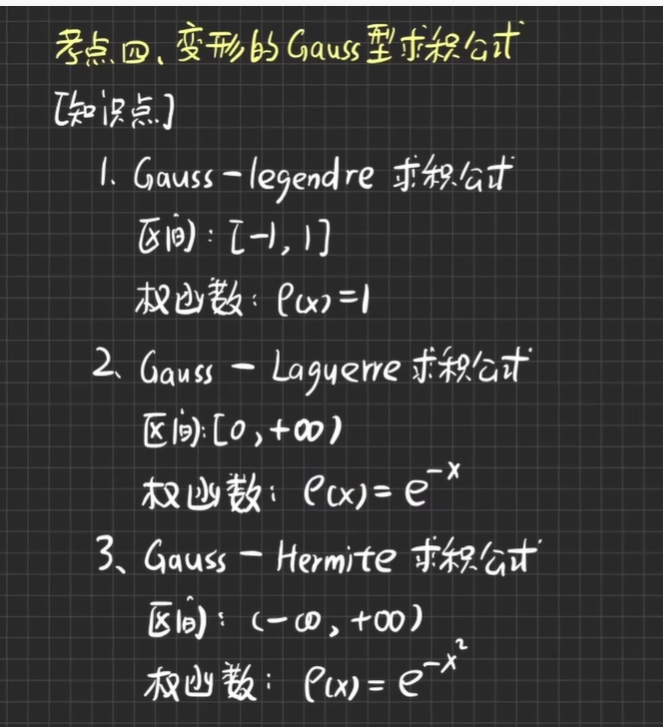 考点四、变形的Gauss型求积公式
[知识点]
1. Gauss-legendre 求积公式
区间：[-1, 1]
权函数：ρ(x)=1
2、Gauss - Laguerre 求积公式
区间：[0, +∞)
权函数：ρ(x) = e^{-x}
3、Gauss - Hermite 求积公式
区间：(-∞, +∞)
权函数：ρ(x) = e^{-x^2}